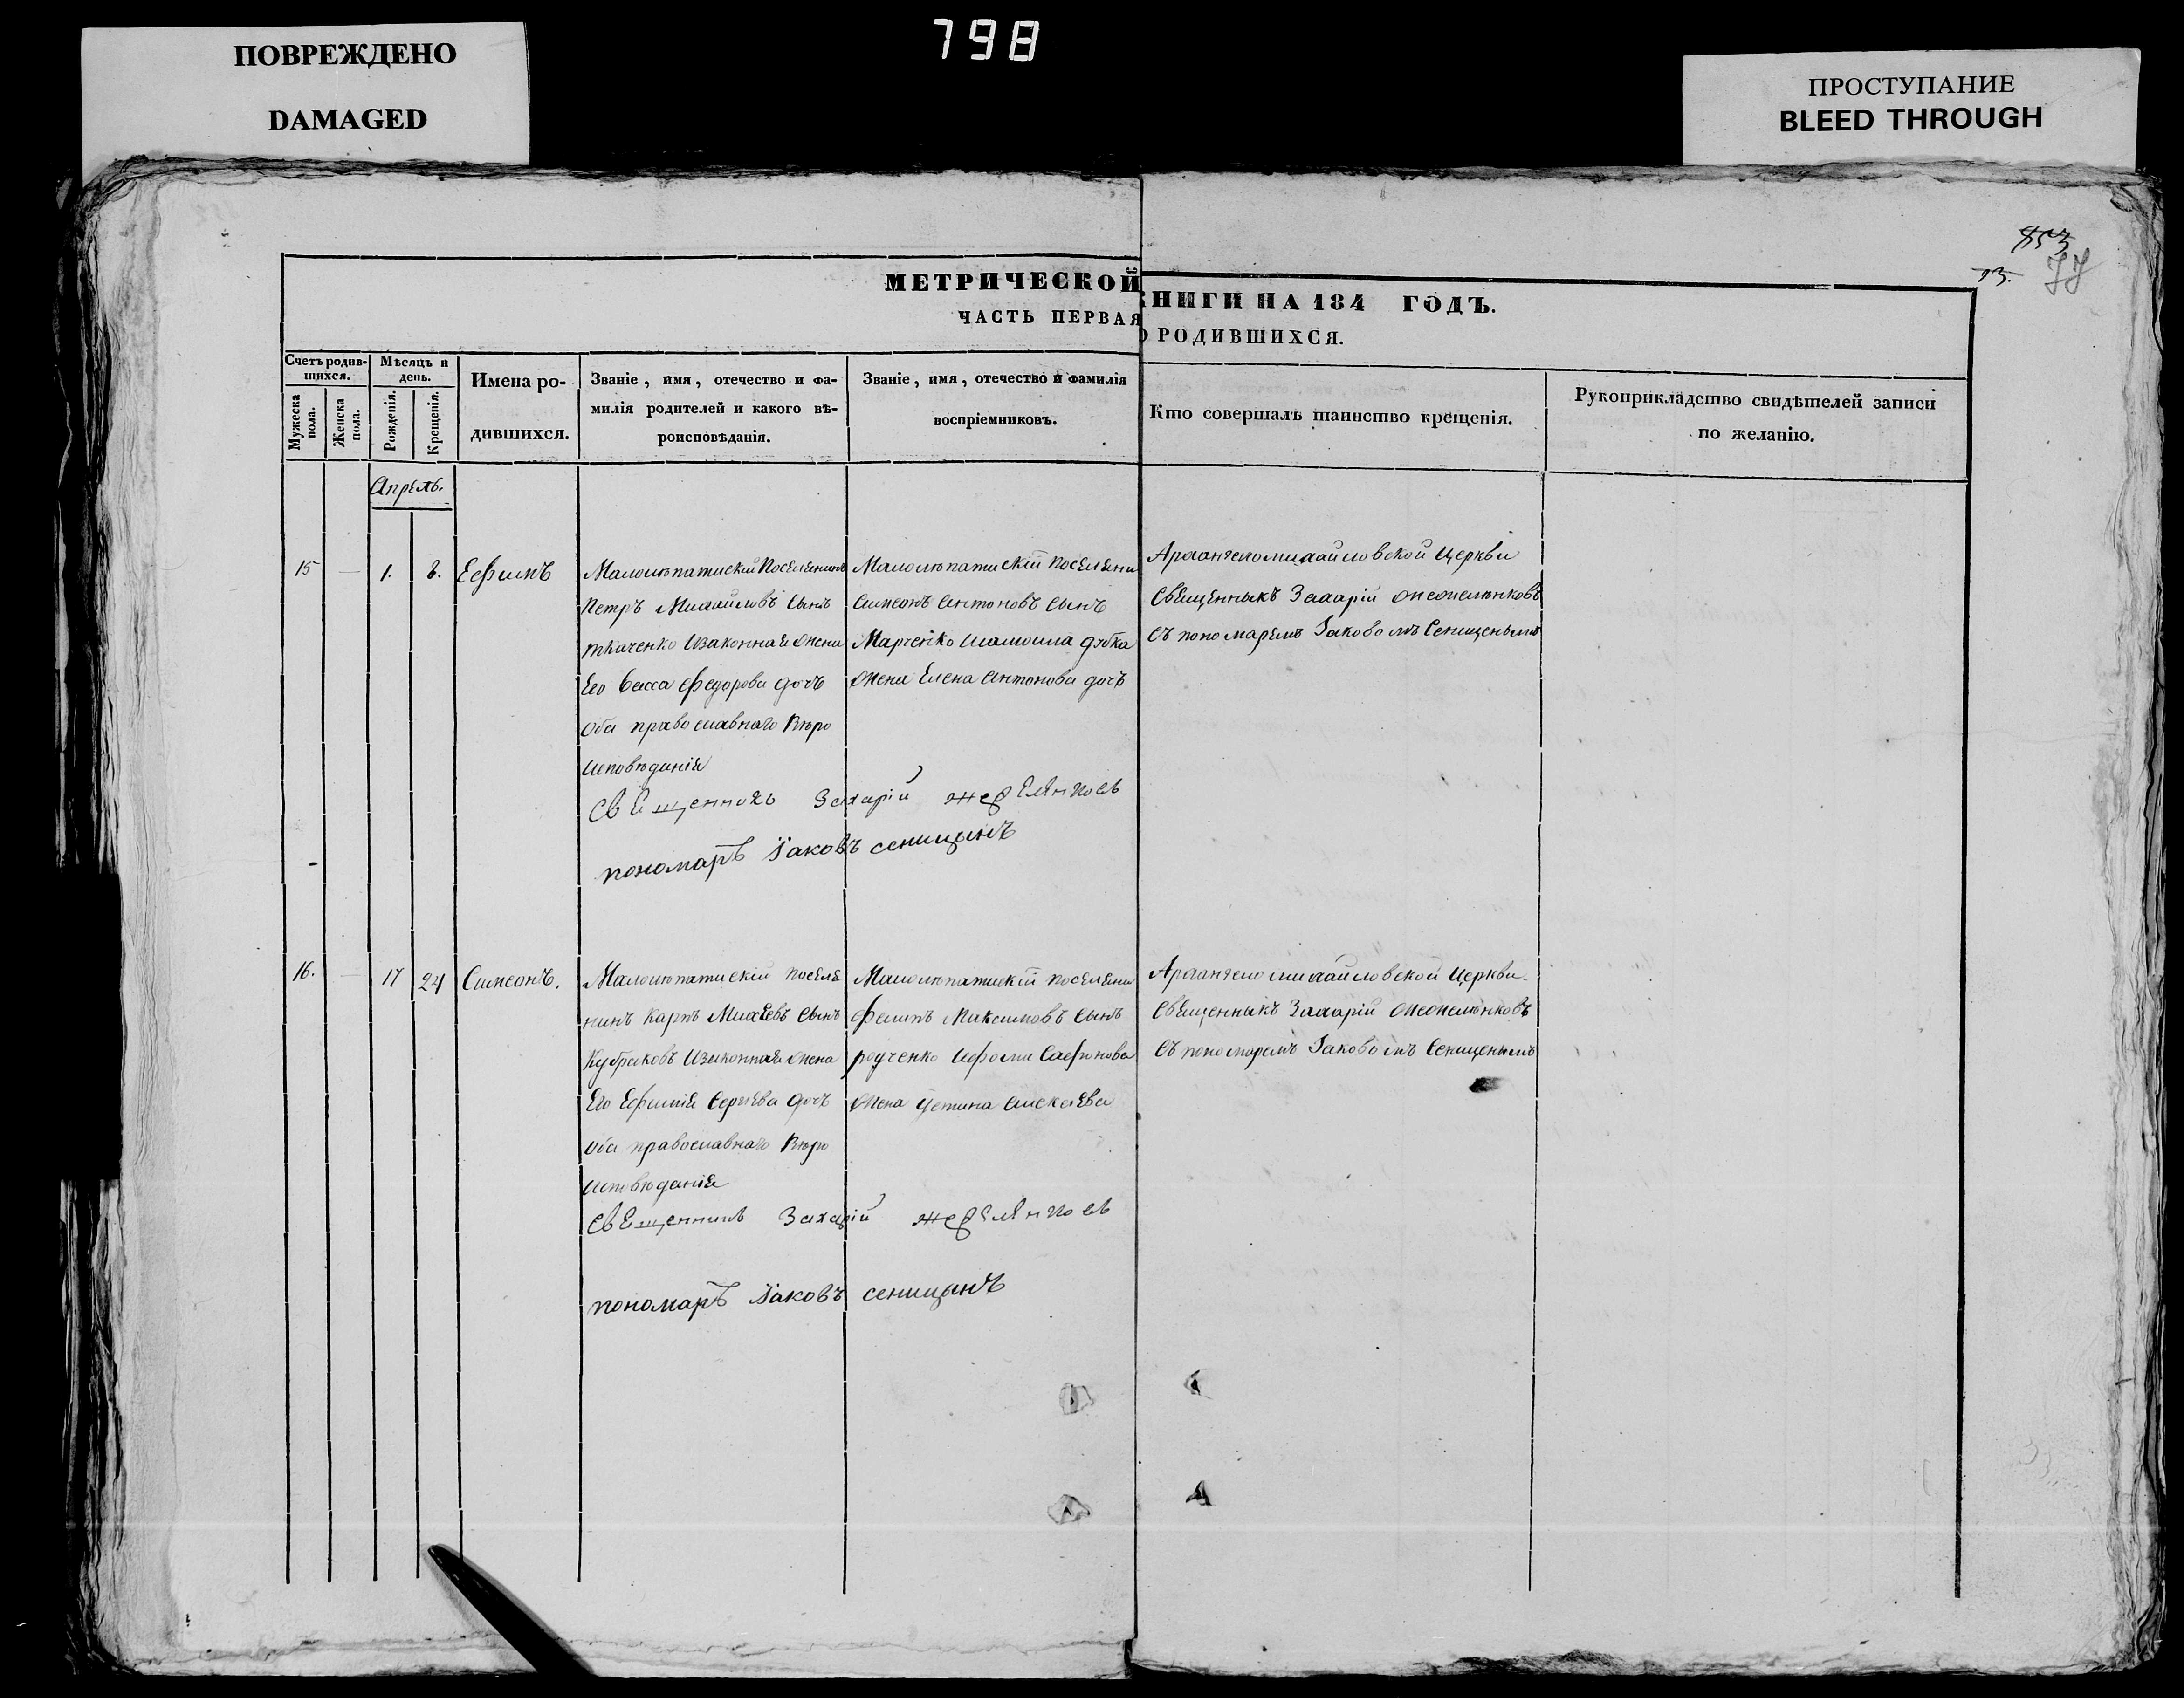 ПОВРЕЖДЕНО
DAMAGED
798
ПРОСТУПАНИЕ
BLEED THROUGH
853
73.
77
МЕТРИЧЕСКОЙ КНИГИ НА 184 ГОДЪ.
ЧАСТЬ ПЕРВАЯ О РОДИВШИХСЯ.
Счетъ родив-
шихся.
Мужеска
пола.
Женска
пола.
Мѣсяцъ и
день.
Рожденія.
Крещенія.
Имена ро-
дившихся.
Званіе, имя, отечество и фа-
милія родителей и какого вѣ-
роисповѣданія.
Званіе, имя, отечество и фамилія
воспріемниковъ.
Кто совершалъ таинство крещенія.
Рукоприкладство свидѣтелей записи
по желанію.
Апрѣль.
15 — 1. 8. Ефимъ
Петръ Михайловъ сынъ
ткаченко изаконная жена
его Васса Федорова дочь
оба православнаго вѣро
исповѣданія
Симеонъ Антоновъ сынъ
Марченко
жена Елена Антонова дочь
Архангеломихайловской церкви
священникъ Захарій
съ пономаремъ Іаковомъ Сеницынымъ
священникъ Захарій
пономарь Іаковъ сеницынъ
16. — 17 24 Симеонъ.
поселя
нинъ Карпъ Михѣевъ сынъ
изаконная жена
его Ефимія Сергѣева дочь
оба православнаго вѣро
исповѣданія
Максимовъ сынъ
жена
Архангеломихайловской церкви
священникъ Захарій
съ пономаремъ Іаковомъ Сеницынымъ
священникъ Захарій
пономарь Іаковъ сеницынъ